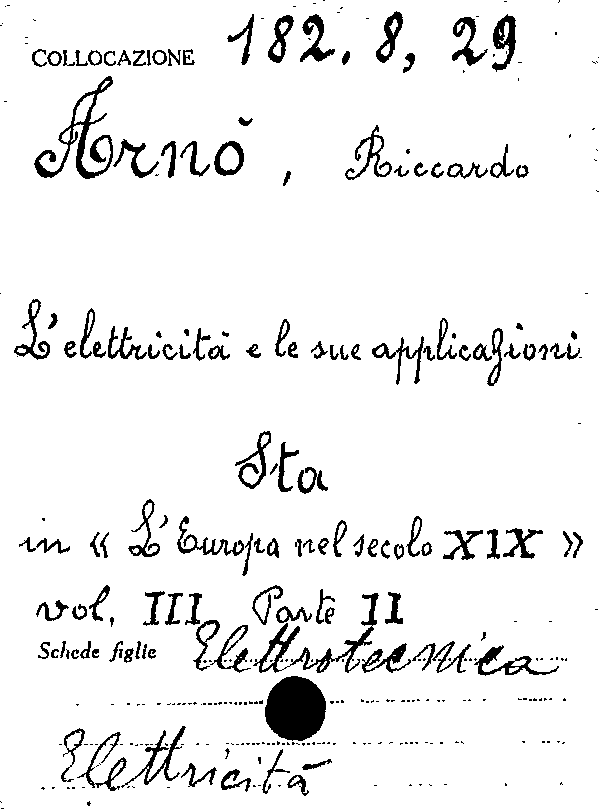 COLLOCAZIONE 182. 8, 29
Arnò, Riccardo
L'elettricità e le sue applicazioni
Sta
in « L'Europa nel secolo XIX »
vol. III Parte II
Schede figlie Elettrotecnica
Elettricità